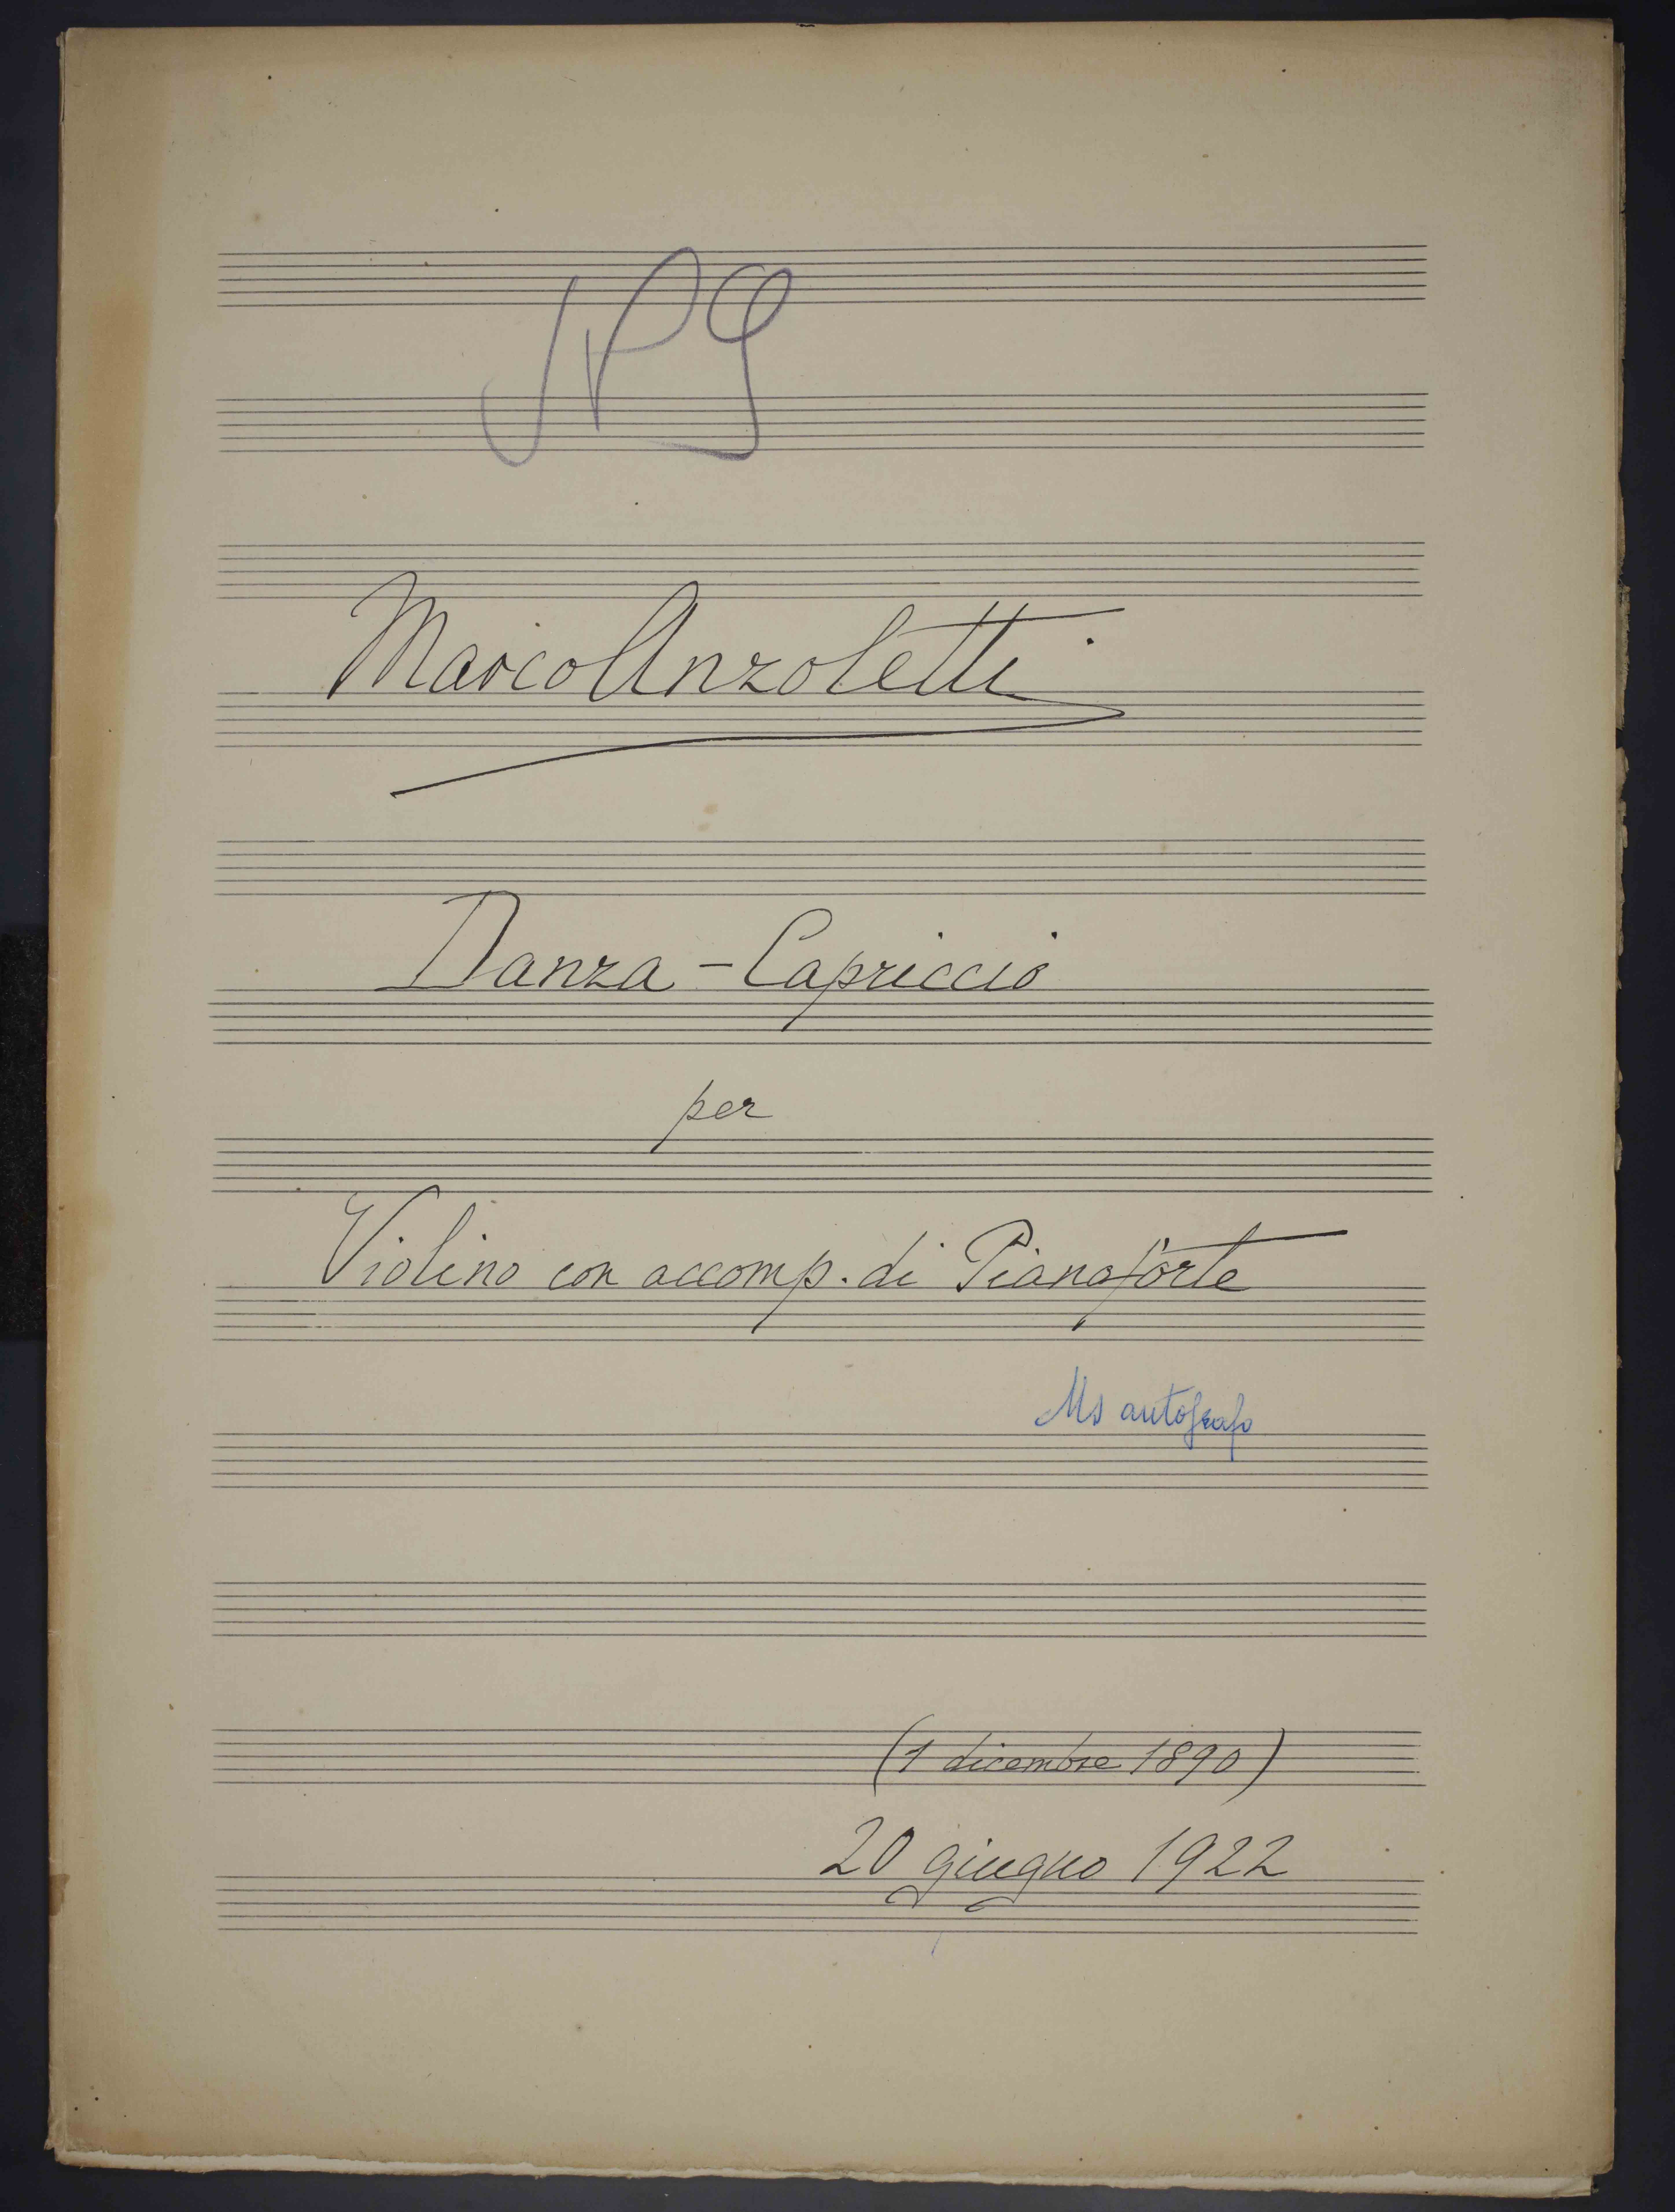 Marco Anzoletti
Danza - Capriccio
per
Violino con accomp. di Pianoforte
Ms autografo
(1 dicembre 1890)
20 giugno 1922